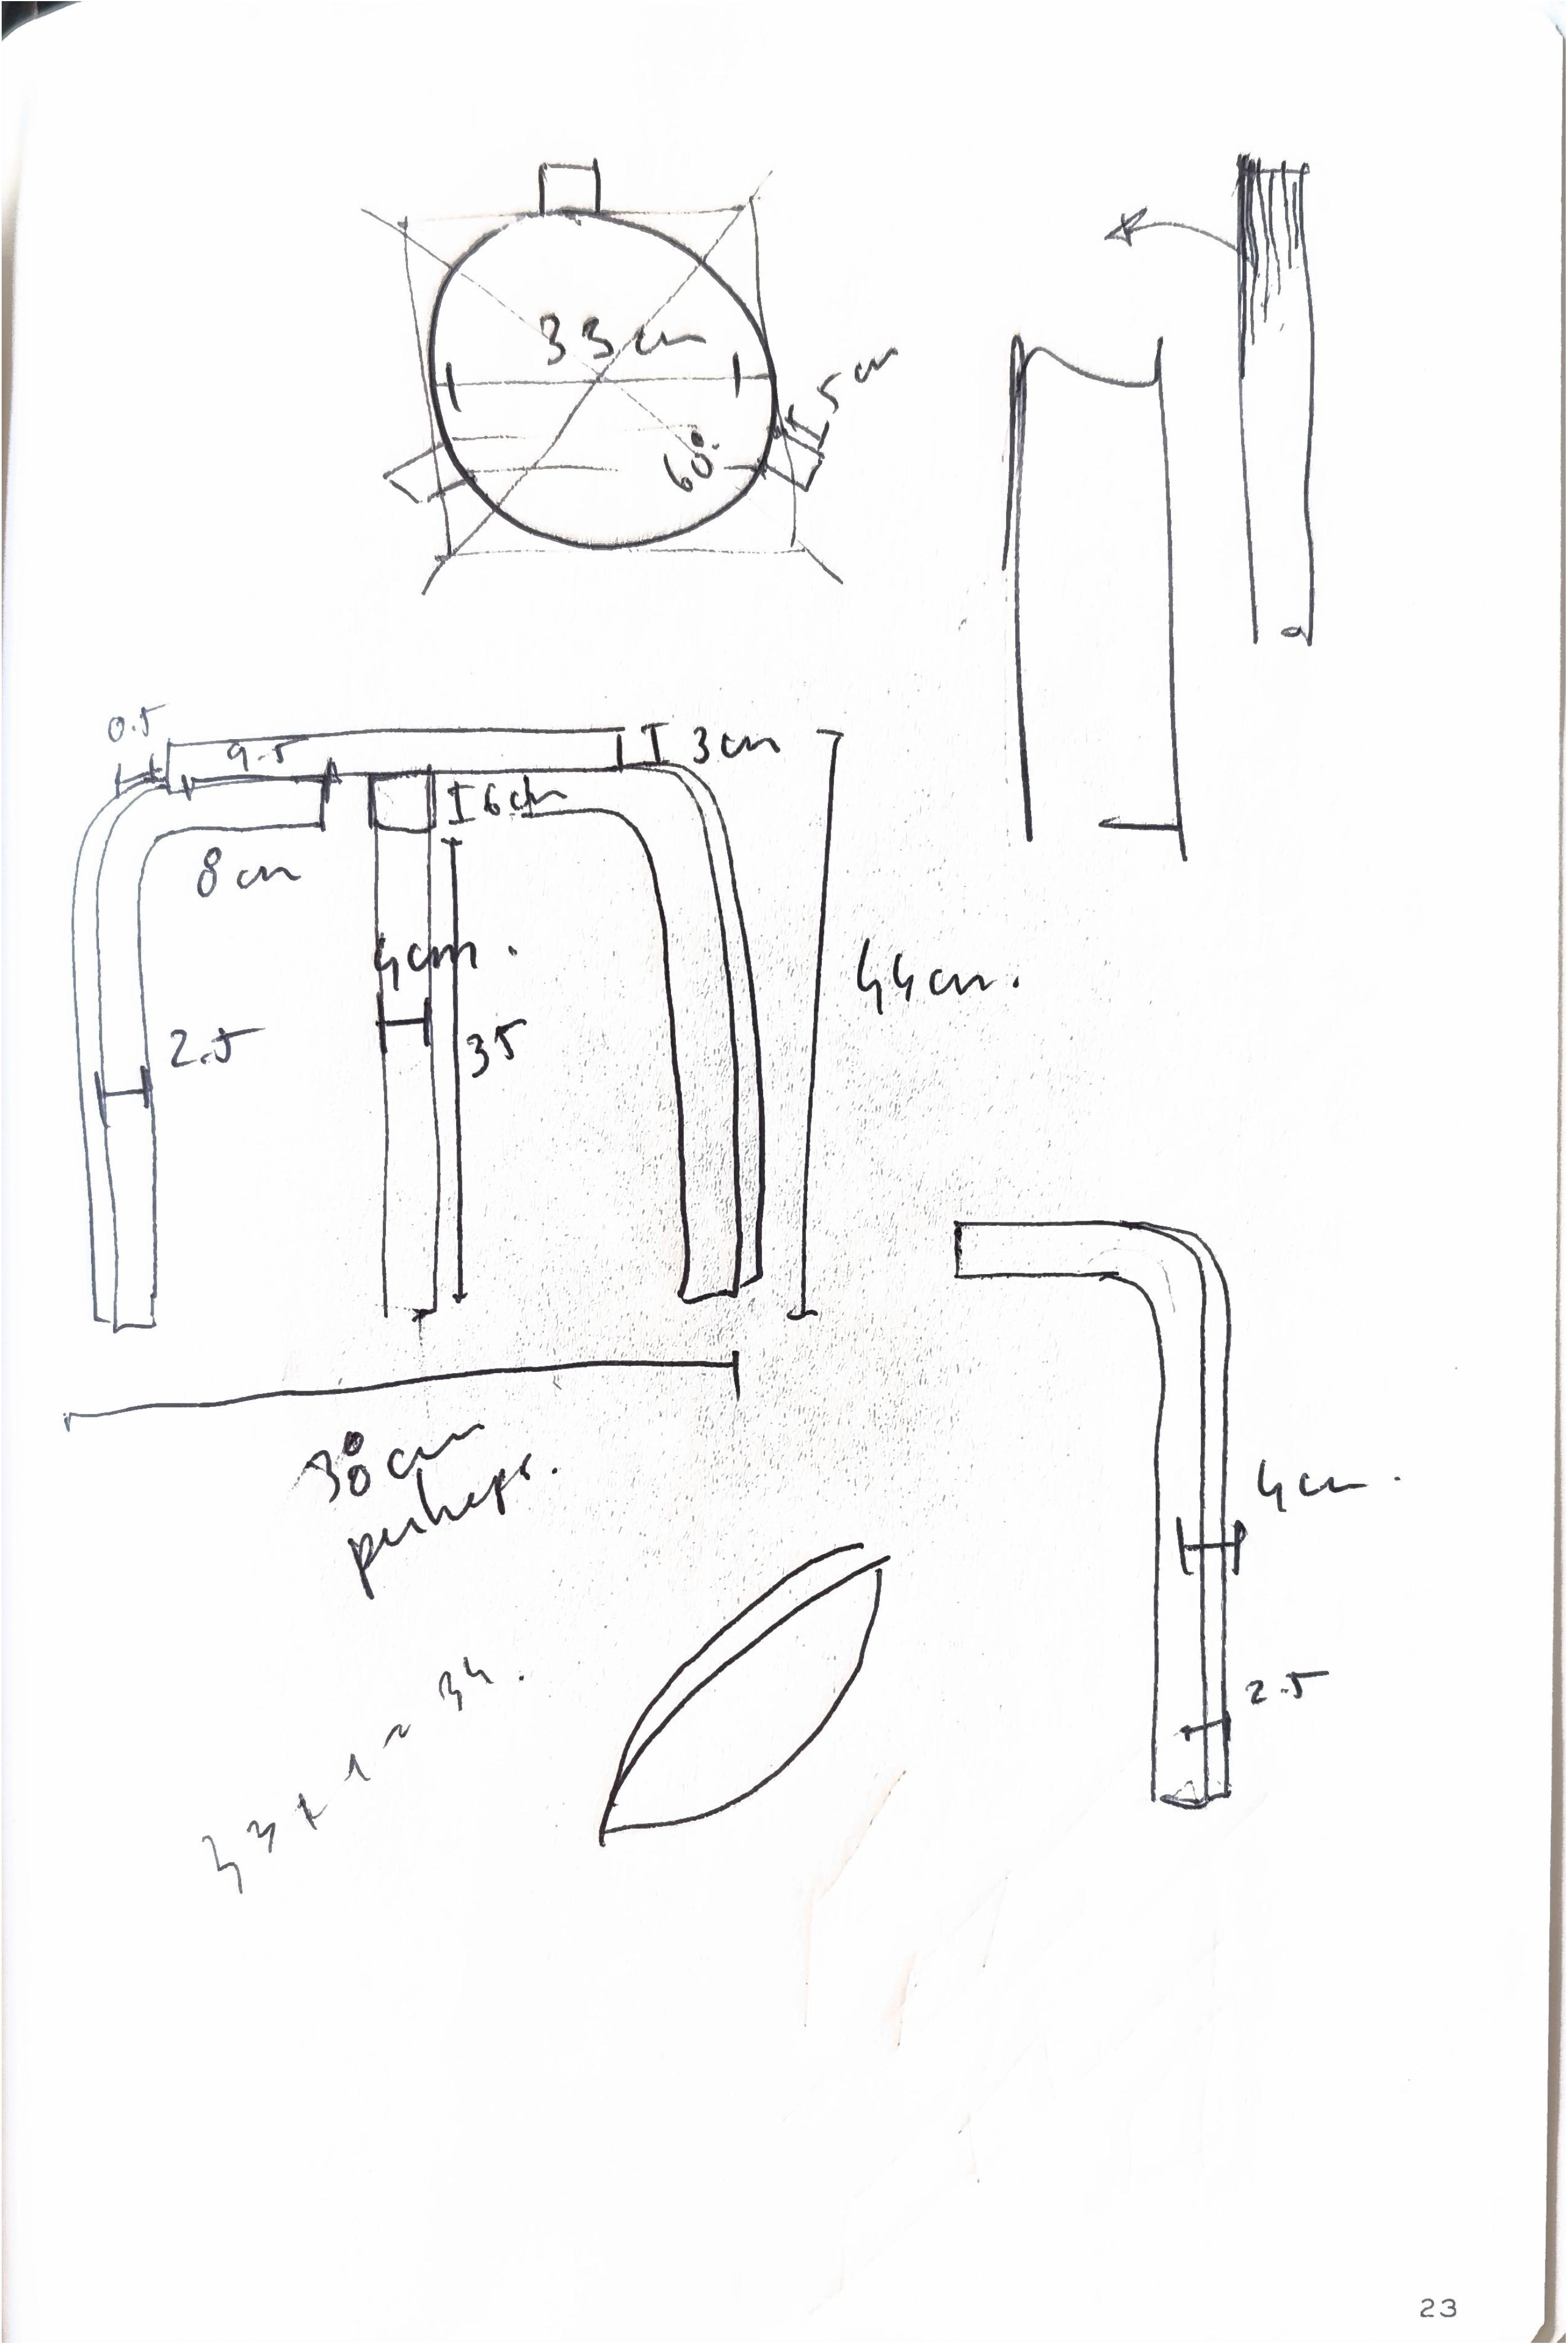 33 cm
5 cm
60°
0.5
9.5
3 cm
6 cm
8 cm
4 cm.
44 cm.
2.5
35
30 cm
perhaps.
4 cm.
2.5
33 x 1 ~ 34.
23